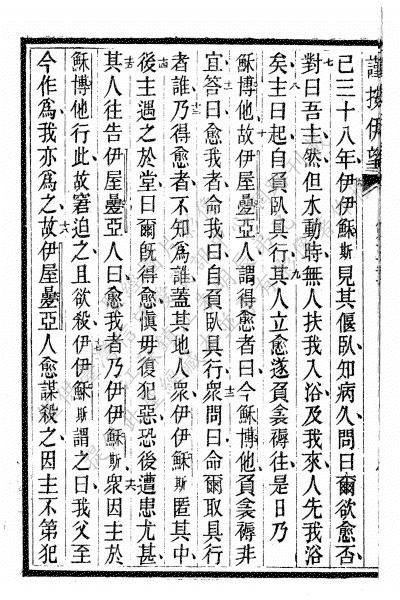 謹按伊望
已三十八年伊伊穌斯見其偃臥知病久問曰爾欲愈否
對曰吾主然但水動時無人扶我入浴及我來人先我浴
矣主曰起自負臥具行其人立愈遂負衾褥往是日乃
穌博他故伊屋疊亞人謂得愈者曰今穌博他負衾褥非
宜答曰愈我者命我曰自負臥具行衆問曰命爾取具行
者誰乃得愈者不知爲誰蓋其地人衆伊伊穌斯匿其中
後主遇之於堂曰爾旣得愈慎毋復犯惡恐後遭患尤甚
其人往告伊屋疊亞人曰愈我者乃伊伊穌斯衆因主於
穌博他行此故窘迫之且欲殺伊伊穌斯謂之曰我父至
今作爲我亦爲之故伊屋疊亞人愈謀殺之因主不第犯